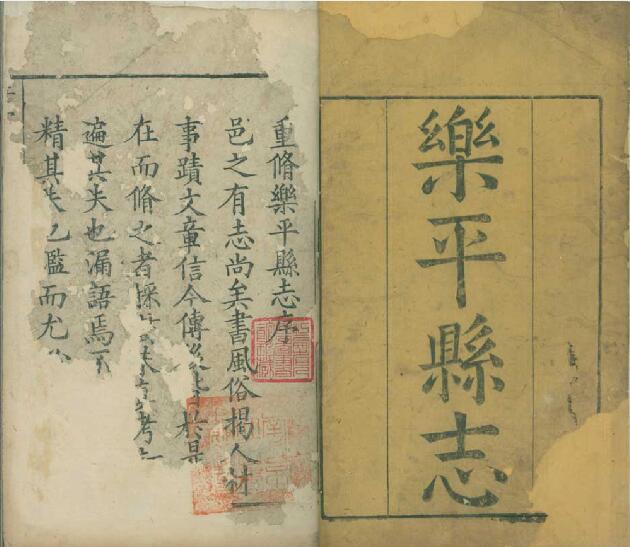 樂平縣志
重脩樂平縣志序
邑之有志尚矣書風俗揭人材
事蹟文章信今傳後 於是
在而脩之者採 考
遍其失也漏語焉不
精其失也濫而尤